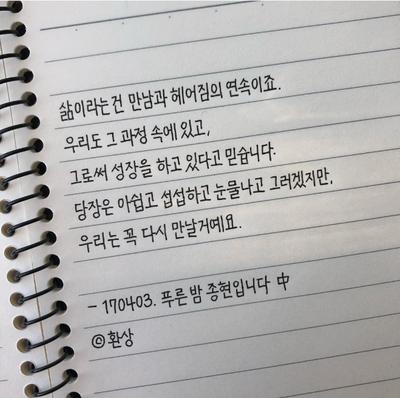 삶이라는건 만남과 헤어짐의 연속이죠.
우리도 그 과정 속에 있고,
그로써 성장을 하고 있다고 믿습니다.
당장은 아쉽고 섭섭하고 눈물나고 그러겠지만,
우리는 꼭 다시 만날거예요.
– 170403. 푸른 밤 종현입니다 中
©환상